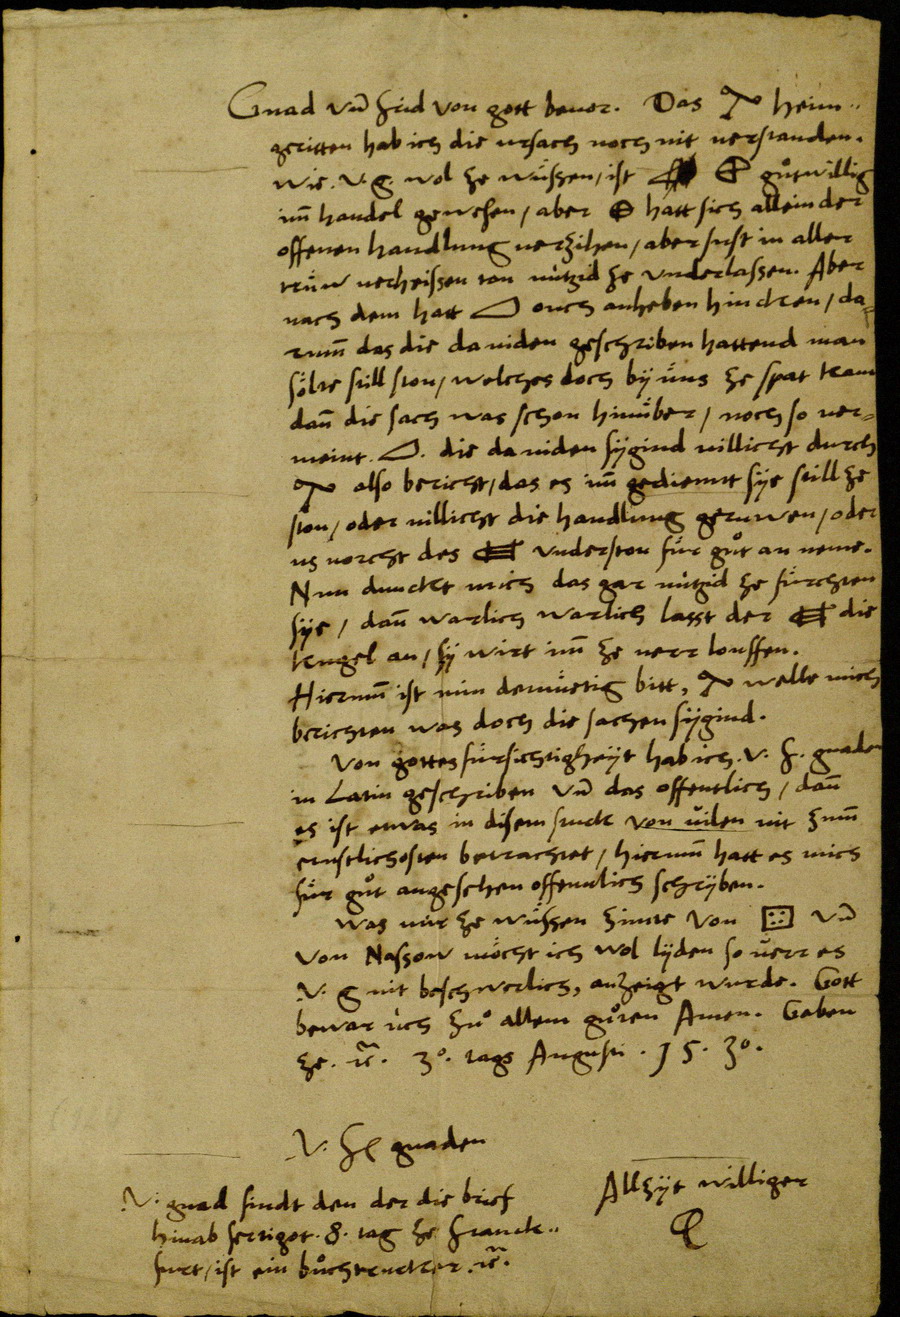 Gnad und frid von gott bevor. Das heim-
geritten hab ich die ursach noch nit verstanden.
wie. V. g. wol ze wüssen, ist gůtwillig
im handel gewesen, aber hatt sich allein der
offenen handlung verzihen, aber sust in aller
trüw verheissen ton nützid ze underlassen. Aber
nach dem hatt ouch anheben hindren, da-
rumm das die da niden geschriben hattend man
sölte still ston, welches doch by üns ze spat kam
dann die sach was schon hinüber, noch so ver-
meint. die da niden sygind villicht durch
also bericht, das es im gediennt sye still ze
ston, oder villicht die handlung geruwen, oder
us vorcht des understou für gůt an neme.
Nun dunckt mich das gar nützid ze fürchten
sye, dann warlich warlich lasst der die
kengel an, sy wirt im ze verr louffen.
Hierumm ist min demüetig bitt, welle mich
berichten was doch die sachen sygind.
Von gottes fürsichtigheyt hab ich. V. f. gnaden
in Latin geschriben und das offentlich, dann
es ist etwas in disem stuck von vilen nit zumm
ernstlichosten betrachtet, hierumm hatt es mich
für gůt angesehen offennlich schryben.
Was mir ze wüssen zimte von ⚃ und
von Nassow möcht ich wol lyden so verr es
V. g nit beschwerlich, anzeigt wurde. Gott
bewar üch zů allem gůten Amen. Geben
ze. 30. tags Augusti. 15. 30.
V. f gnaden
Allzyt williger
V. gnad findt den der die brief
hinab fertigot. 8. tag ze Franck-
furt, ist ein bůchtrucker.